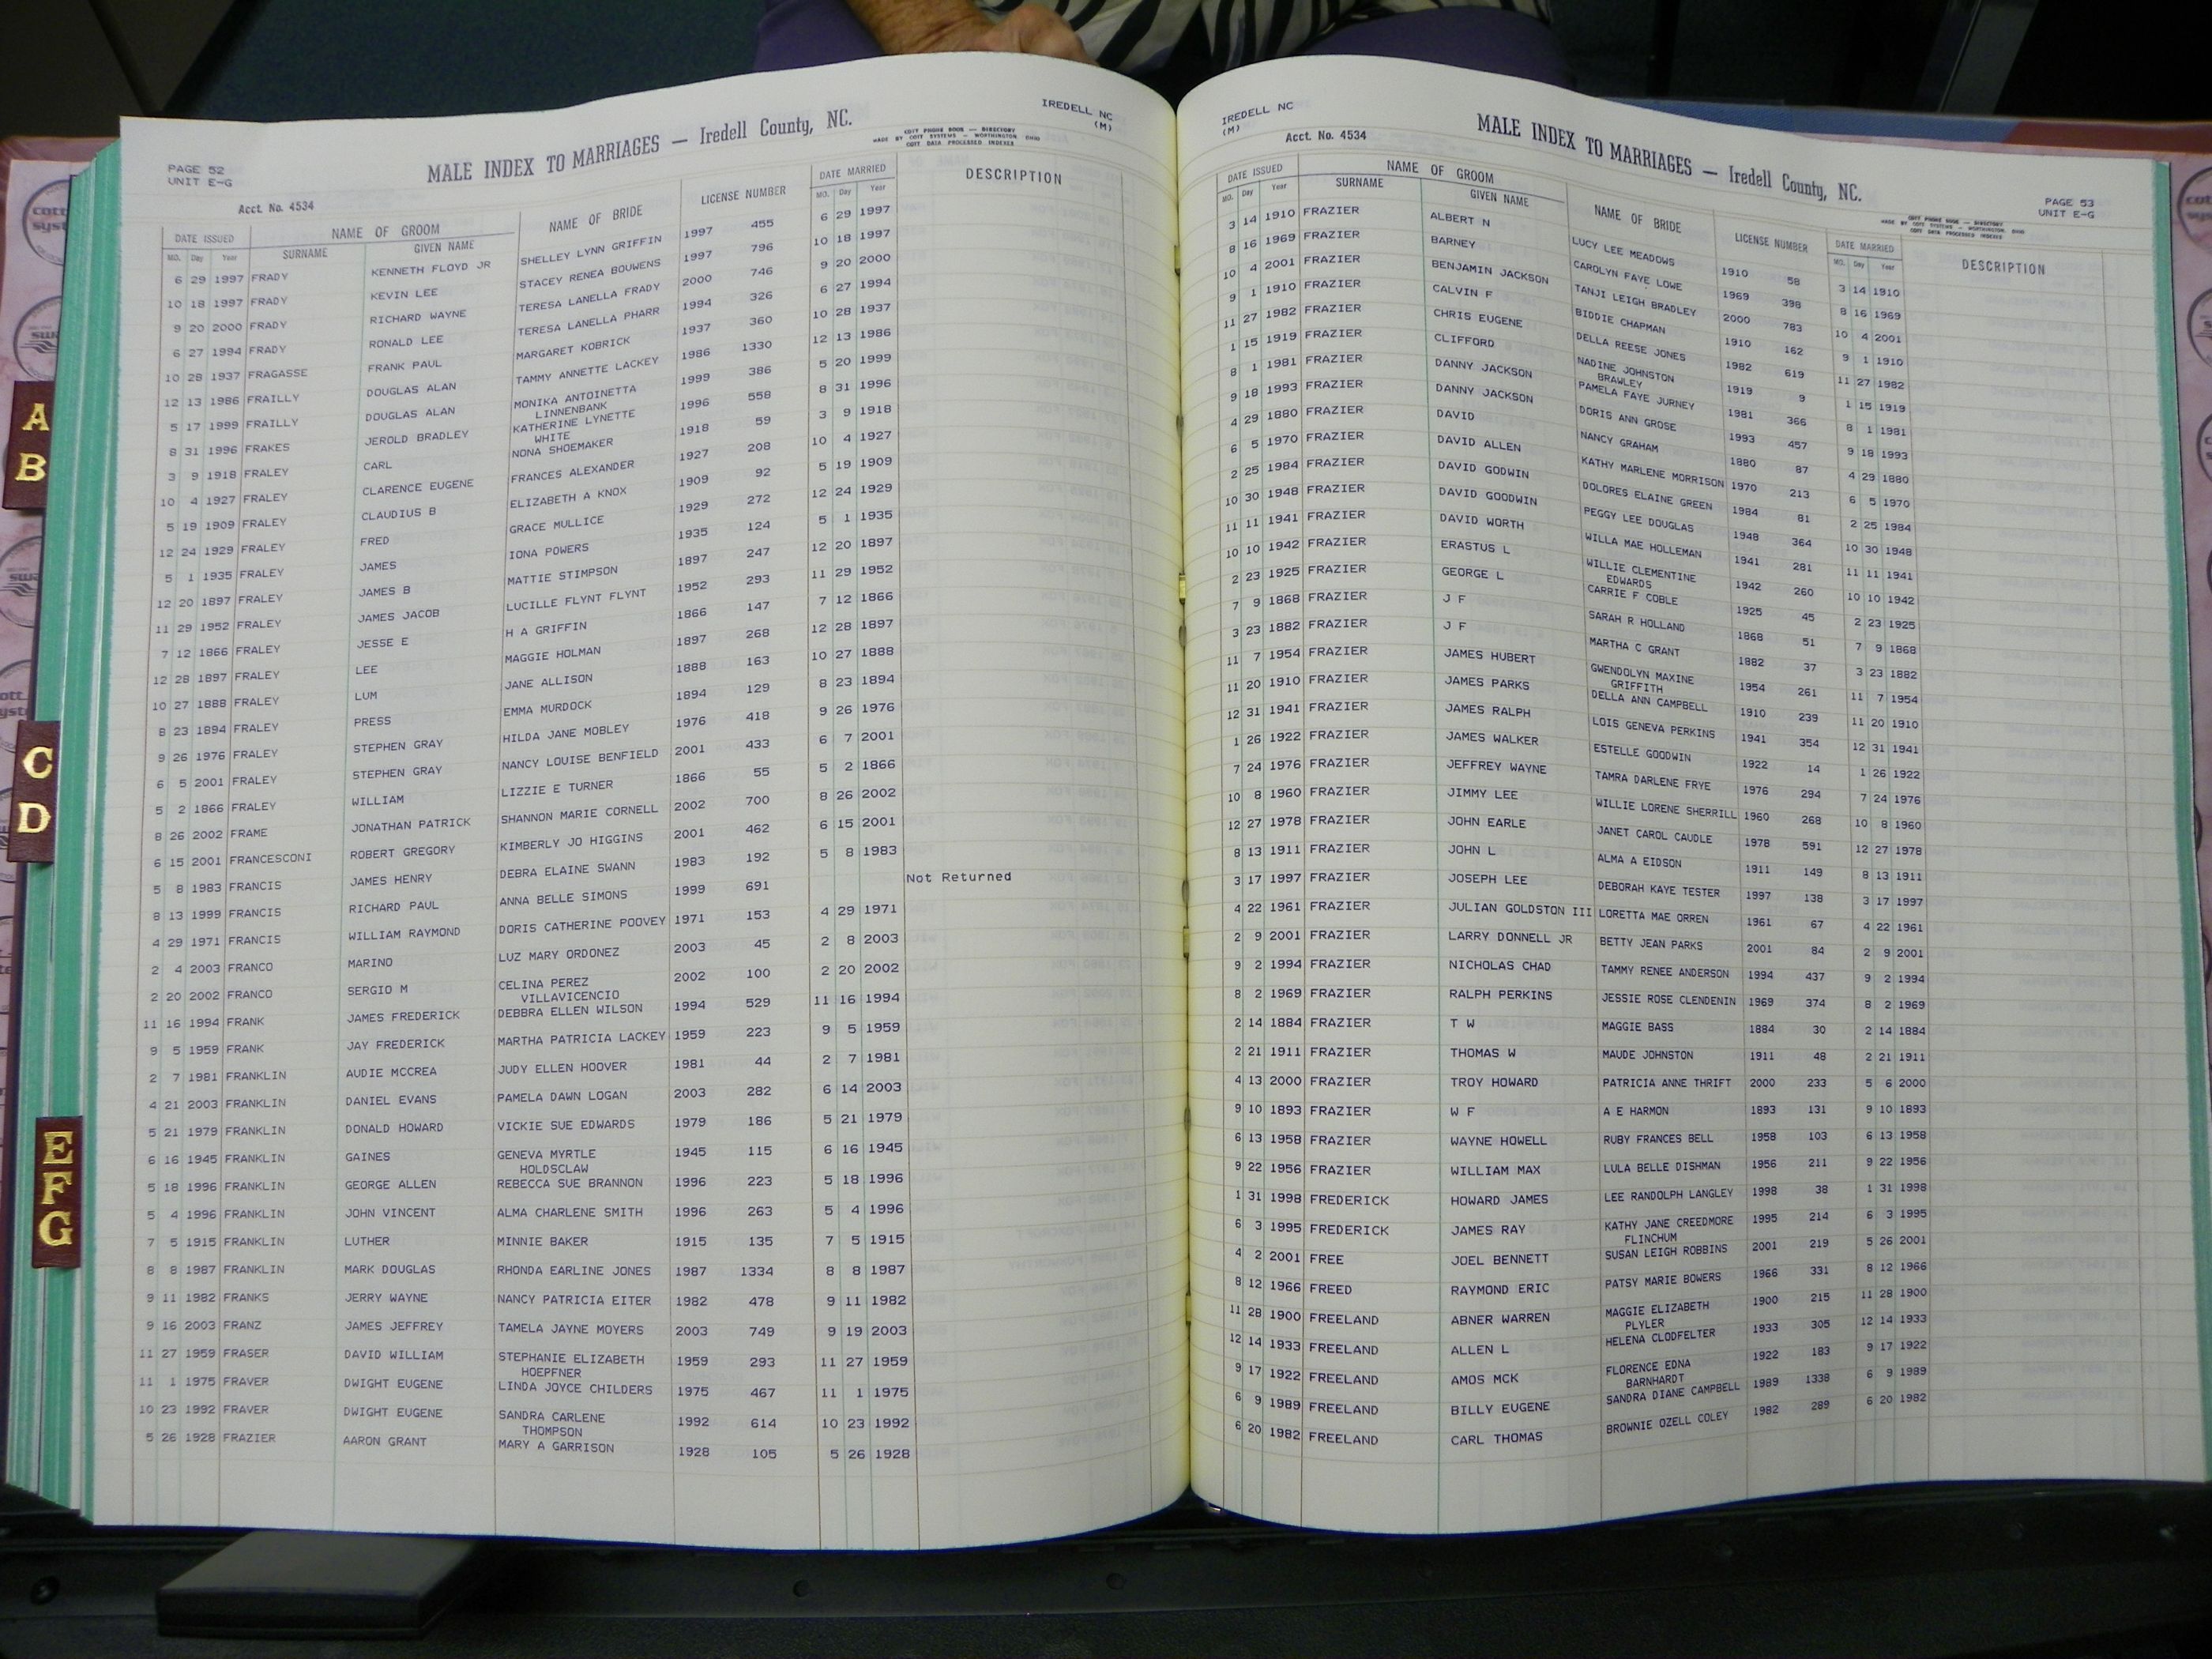 PAGE 52
UNIT E-G
Acct. No. 4534
MALE INDEX TO MARRIAGES — Iredell County, NC.
COTT PHONE BOOK — DIRECTORY
MADE BY COTT SYSTEMS — WORTHINGTON OHIO
COTT DATA PROCESSED INDEXES
IREDELL NC
(M)
DATE ISSUED NAME OF GROOM NAME OF BRIDE LICENSE NUMBER DATE MARRIED DESCRIPTION
MO. Day Year SURNAME GIVEN NAME MO. Day Year
6 29 1997 FRADY KENNETH FLOYD JR SHELLEY LYNN GRIFFIN 1997 455 6 29 1997
10 18 1997 FRADY KEVIN LEE STACEY RENEA BOUWENS 1997 796 10 18 1997
9 20 2000 FRADY RICHARD WAYNE TERESA LANELLA FRADY 2000 746 9 20 2000
6 27 1994 FRADY RONALD LEE TERESA LANELLA PHARR 1994 326 6 27 1994
10 28 1937 FRAGASSE FRANK PAUL MARGARET KOBRICK 1937 360 10 28 1937
12 13 1986 FRAILLY DOUGLAS ALAN TAMMY ANNETTE LACKEY 1986 1330 12 13 1986
5 17 1999 FRAILLY DOUGLAS ALAN MONIKA ANTOINETTA 1999 386 5 20 1999
LINNENBANK
8 31 1996 FRAKES JEROLD BRADLEY KATHERINE LYNETTE 1996 558 8 31 1996
WHITE
3 9 1918 FRALEY CARL NONA SHOEMAKER 1918 59 3 9 1918
10 4 1927 FRALEY CLARENCE EUGENE FRANCES ALEXANDER 1927 208 10 4 1927
5 19 1909 FRALEY CLAUDIUS B ELIZABETH A KNOX 1909 92 5 19 1909
12 24 1929 FRALEY FRED GRACE MULLICE 1929 272 12 24 1929
5 1 1935 FRALEY JAMES IONA POWERS 1935 124 5 1 1935
12 20 1897 FRALEY JAMES B MATTIE STIMPSON 1897 247 12 20 1897
11 29 1952 FRALEY JAMES JACOB LUCILLE FLYNT FLYNT 1952 293 11 29 1952
7 12 1866 FRALEY JESSE E H A GRIFFIN 1866 147 7 12 1866
12 28 1897 FRALEY LEE MAGGIE HOLMAN 1897 268 12 28 1897
10 27 1888 FRALEY LUM JANE ALLISON 1888 163 10 27 1888
8 23 1894 FRALEY PRESS EMMA MURDOCK 1894 129 8 23 1894
9 26 1976 FRALEY STEPHEN GRAY HILDA JANE MOBLEY 1976 418 9 26 1976
6 5 2001 FRALEY STEPHEN GRAY NANCY LOUISE BENFIELD 2001 433 6 7 2001
5 2 1866 FRALEY WILLIAM LIZZIE E TURNER 1866 55 5 2 1866
8 26 2002 FRAME JONATHAN PATRICK SHANNON MARIE CORNELL 2002 700 8 26 2002
6 15 2001 FRANCESCONI ROBERT GREGORY KIMBERLY JO HIGGINS 2001 462 6 15 2001
5 8 1983 FRANCIS JAMES HENRY DEBRA ELAINE SWANN 1983 192 5 8 1983
8 13 1999 FRANCIS RICHARD PAUL ANNA BELLE SIMONS 1999 691 Not Returned
4 29 1971 FRANCIS WILLIAM RAYMOND DORIS CATHERINE POOVEY 1971 153 4 29 1971
2 4 2003 FRANCO MARINO LUZ MARY ORDONEZ 2003 45 2 8 2003
2 20 2002 FRANCO SERGIO M CELINA PEREZ 2002 100 2 20 2002
VILLAVICENCIO
11 16 1994 FRANK JAMES FREDERICK DEBBRA ELLEN WILSON 1994 529 11 16 1994
9 5 1959 FRANK JAY FREDERICK MARTHA PATRICIA LACKEY 1959 223 9 5 1959
2 7 1981 FRANKLIN AUDIE MCCREA JUDY ELLEN HOOVER 1981 44 2 7 1981
4 21 2003 FRANKLIN DANIEL EVANS PAMELA DAWN LOGAN 2003 282 6 14 2003
5 21 1979 FRANKLIN DONALD HOWARD VICKIE SUE EDWARDS 1979 186 5 21 1979
6 16 1945 FRANKLIN GAINES GENEVA MYRTLE 1945 115 6 16 1945
HOLDSCLAW
5 18 1996 FRANKLIN GEORGE ALLEN REBECCA SUE BRANNON 1996 223 5 18 1996
5 4 1996 FRANKLIN JOHN VINCENT ALMA CHARLENE SMITH 1996 263 5 4 1996
7 5 1915 FRANKLIN LUTHER MINNIE BAKER 1915 135 7 5 1915
8 8 1987 FRANKLIN MARK DOUGLAS RHONDA EARLINE JONES 1987 1334 8 8 1987
9 11 1982 FRANKS JERRY WAYNE NANCY PATRICIA EITER 1982 478 9 11 1982
9 16 2003 FRANZ JAMES JEFFREY TAMELA JAYNE MOYERS 2003 749 9 19 2003
11 27 1959 FRASER DAVID WILLIAM STEPHANIE ELIZABETH 1959 293 11 27 1959
HOEPFNER
11 1 1975 FRAVER DWIGHT EUGENE LINDA JOYCE CHILDERS 1975 467 11 1 1975
10 23 1992 FRAVER DWIGHT EUGENE SANDRA CARLENE 1992 614 10 23 1992
THOMPSON
5 26 1928 FRAZIER AARON GRANT MARY A GARRISON 1928 105 5 26 1928
IREDELL NC
(M)
Acct. No. 4534
MALE INDEX TO MARRIAGES — Iredell County, NC.
COTT PHONE BOOK — DIRECTORY
MADE BY COTT SYSTEMS — WORTHINGTON OHIO
COTT DATA PROCESSED INDEXES
PAGE 53
UNIT E-G
DATE ISSUED NAME OF GROOM NAME OF BRIDE LICENSE NUMBER DATE MARRIED DESCRIPTION
MO. Day Year SURNAME GIVEN NAME MO. Day Year
3 14 1910 FRAZIER ALBERT N LUCY LEE MEADOWS 1910 58 3 14 1910
8 16 1969 FRAZIER BARNEY CAROLYN FAYE LOWE 1969 398 8 16 1969
10 4 2001 FRAZIER BENJAMIN JACKSON TANJI LEIGH BRADLEY 2000 783 10 4 2001
9 1 1910 FRAZIER CALVIN F BIDDIE CHAPMAN 1910 162 9 1 1910
11 27 1982 FRAZIER CHRIS EUGENE DELLA REESE JONES 1982 619 11 27 1982
1 15 1919 FRAZIER CLIFFORD NADINE JOHNSTON 1919 9 1 15 1919
BRAWLEY
8 1 1981 FRAZIER DANNY JACKSON PAMELA FAYE JURNEY 1981 366 8 1 1981
9 18 1993 FRAZIER DANNY JACKSON DORIS ANN GROSE 1993 457 9 18 1993
4 29 1880 FRAZIER DAVID NANCY GRAHAM 1880 87 4 29 1880
6 5 1970 FRAZIER DAVID ALLEN KATHY MARLENE MORRISON 1970 213 6 5 1970
2 25 1984 FRAZIER DAVID GODWIN DOLORES ELAINE GREEN 1984 81 2 25 1984
10 30 1948 FRAZIER DAVID GOODWIN PEGGY LEE DOUGLAS 1948 364 10 30 1948
11 11 1941 FRAZIER DAVID WORTH WILLA MAE HOLLEMAN 1941 281 11 11 1941
10 10 1942 FRAZIER ERASTUS L WILLIE CLEMENTINE 1942 260 10 10 1942
EDWARDS
2 23 1925 FRAZIER GEORGE L CARRIE F COBLE 1925 45 2 23 1925
7 9 1868 FRAZIER J F SARAH R HOLLAND 1868 51 7 9 1868
3 23 1882 FRAZIER J F MARTHA C GRANT 1882 37 3 23 1882
11 7 1954 FRAZIER JAMES HUBERT GWENDOLYN MAXINE 1954 261 11 7 1954
GRIFFITH
11 20 1910 FRAZIER JAMES PARKS DELLA ANN CAMPBELL 1910 239 11 20 1910
12 31 1941 FRAZIER JAMES RALPH LOIS GENEVA PERKINS 1941 354 12 31 1941
1 26 1922 FRAZIER JAMES WALKER ESTELLE GOODWIN 1922 14 1 26 1922
7 24 1976 FRAZIER JEFFREY WAYNE TAMRA DARLENE FRYE 1976 294 7 24 1976
10 8 1960 FRAZIER JIMMY LEE WILLIE LORENE SHERRILL 1960 268 10 8 1960
12 27 1978 FRAZIER JOHN EARLE JANET CAROL CAUDLE 1978 591 12 27 1978
8 13 1911 FRAZIER JOHN L ALMA A EIDSON 1911 149 8 13 1911
3 17 1997 FRAZIER JOSEPH LEE DEBORAH KAYE TESTER 1997 138 3 17 1997
4 22 1961 FRAZIER JULIAN GOLDSTON III LORETTA MAE ORREN 1961 67 4 22 1961
2 9 2001 FRAZIER LARRY DONNELL JR BETTY JEAN PARKS 2001 84 2 9 2001
9 2 1994 FRAZIER NICHOLAS CHAD TAMMY RENEE ANDERSON 1994 437 9 2 1994
8 2 1969 FRAZIER RALPH PERKINS JESSIE ROSE CLENDENIN 1969 374 8 2 1969
2 14 1884 FRAZIER T W MAGGIE BASS 1884 30 2 14 1884
2 21 1911 FRAZIER THOMAS W MAUDE JOHNSTON 1911 48 2 21 1911
4 13 2000 FRAZIER TROY HOWARD PATRICIA ANNE THRIFT 2000 233 5 6 2000
9 10 1893 FRAZIER W F A E HARMON 1893 131 9 10 1893
6 13 1958 FRAZIER WAYNE HOWELL RUBY FRANCES BELL 1958 103 6 13 1958
9 22 1956 FRAZIER WILLIAM MAX LULA BELLE DISHMAN 1956 211 9 22 1956
1 31 1998 FREDERICK HOWARD JAMES LEE RANDOLPH LANGLEY 1998 38 1 31 1998
6 3 1995 FREDERICK JAMES RAY KATHY JANE CREEDMORE 1995 214 6 3 1995
FLINCHUM
4 2 2001 FREE JOEL BENNETT SUSAN LEIGH ROBBINS 2001 219 5 26 2001
8 12 1966 FREED RAYMOND ERIC PATSY MARIE BOWERS 1966 331 8 12 1966
11 28 1900 FREELAND ABNER WARREN MAGGIE ELIZABETH 1900 215 11 28 1900
PLYLER
12 14 1933 FREELAND ALLEN L HELENA CLODFELTER 1933 305 12 14 1933
9 17 1922 FREELAND AMOS MCK FLORENCE EDNA 1922 183 9 17 1922
BARNHARDT
6 9 1989 FREELAND BILLY EUGENE SANDRA DIANE CAMPBELL 1989 1338 6 9 1989
6 20 1982 FREELAND CARL THOMAS BROWNIE OZELL COLEY 1982 289 6 20 1982
A
B
C
D
E
F
G